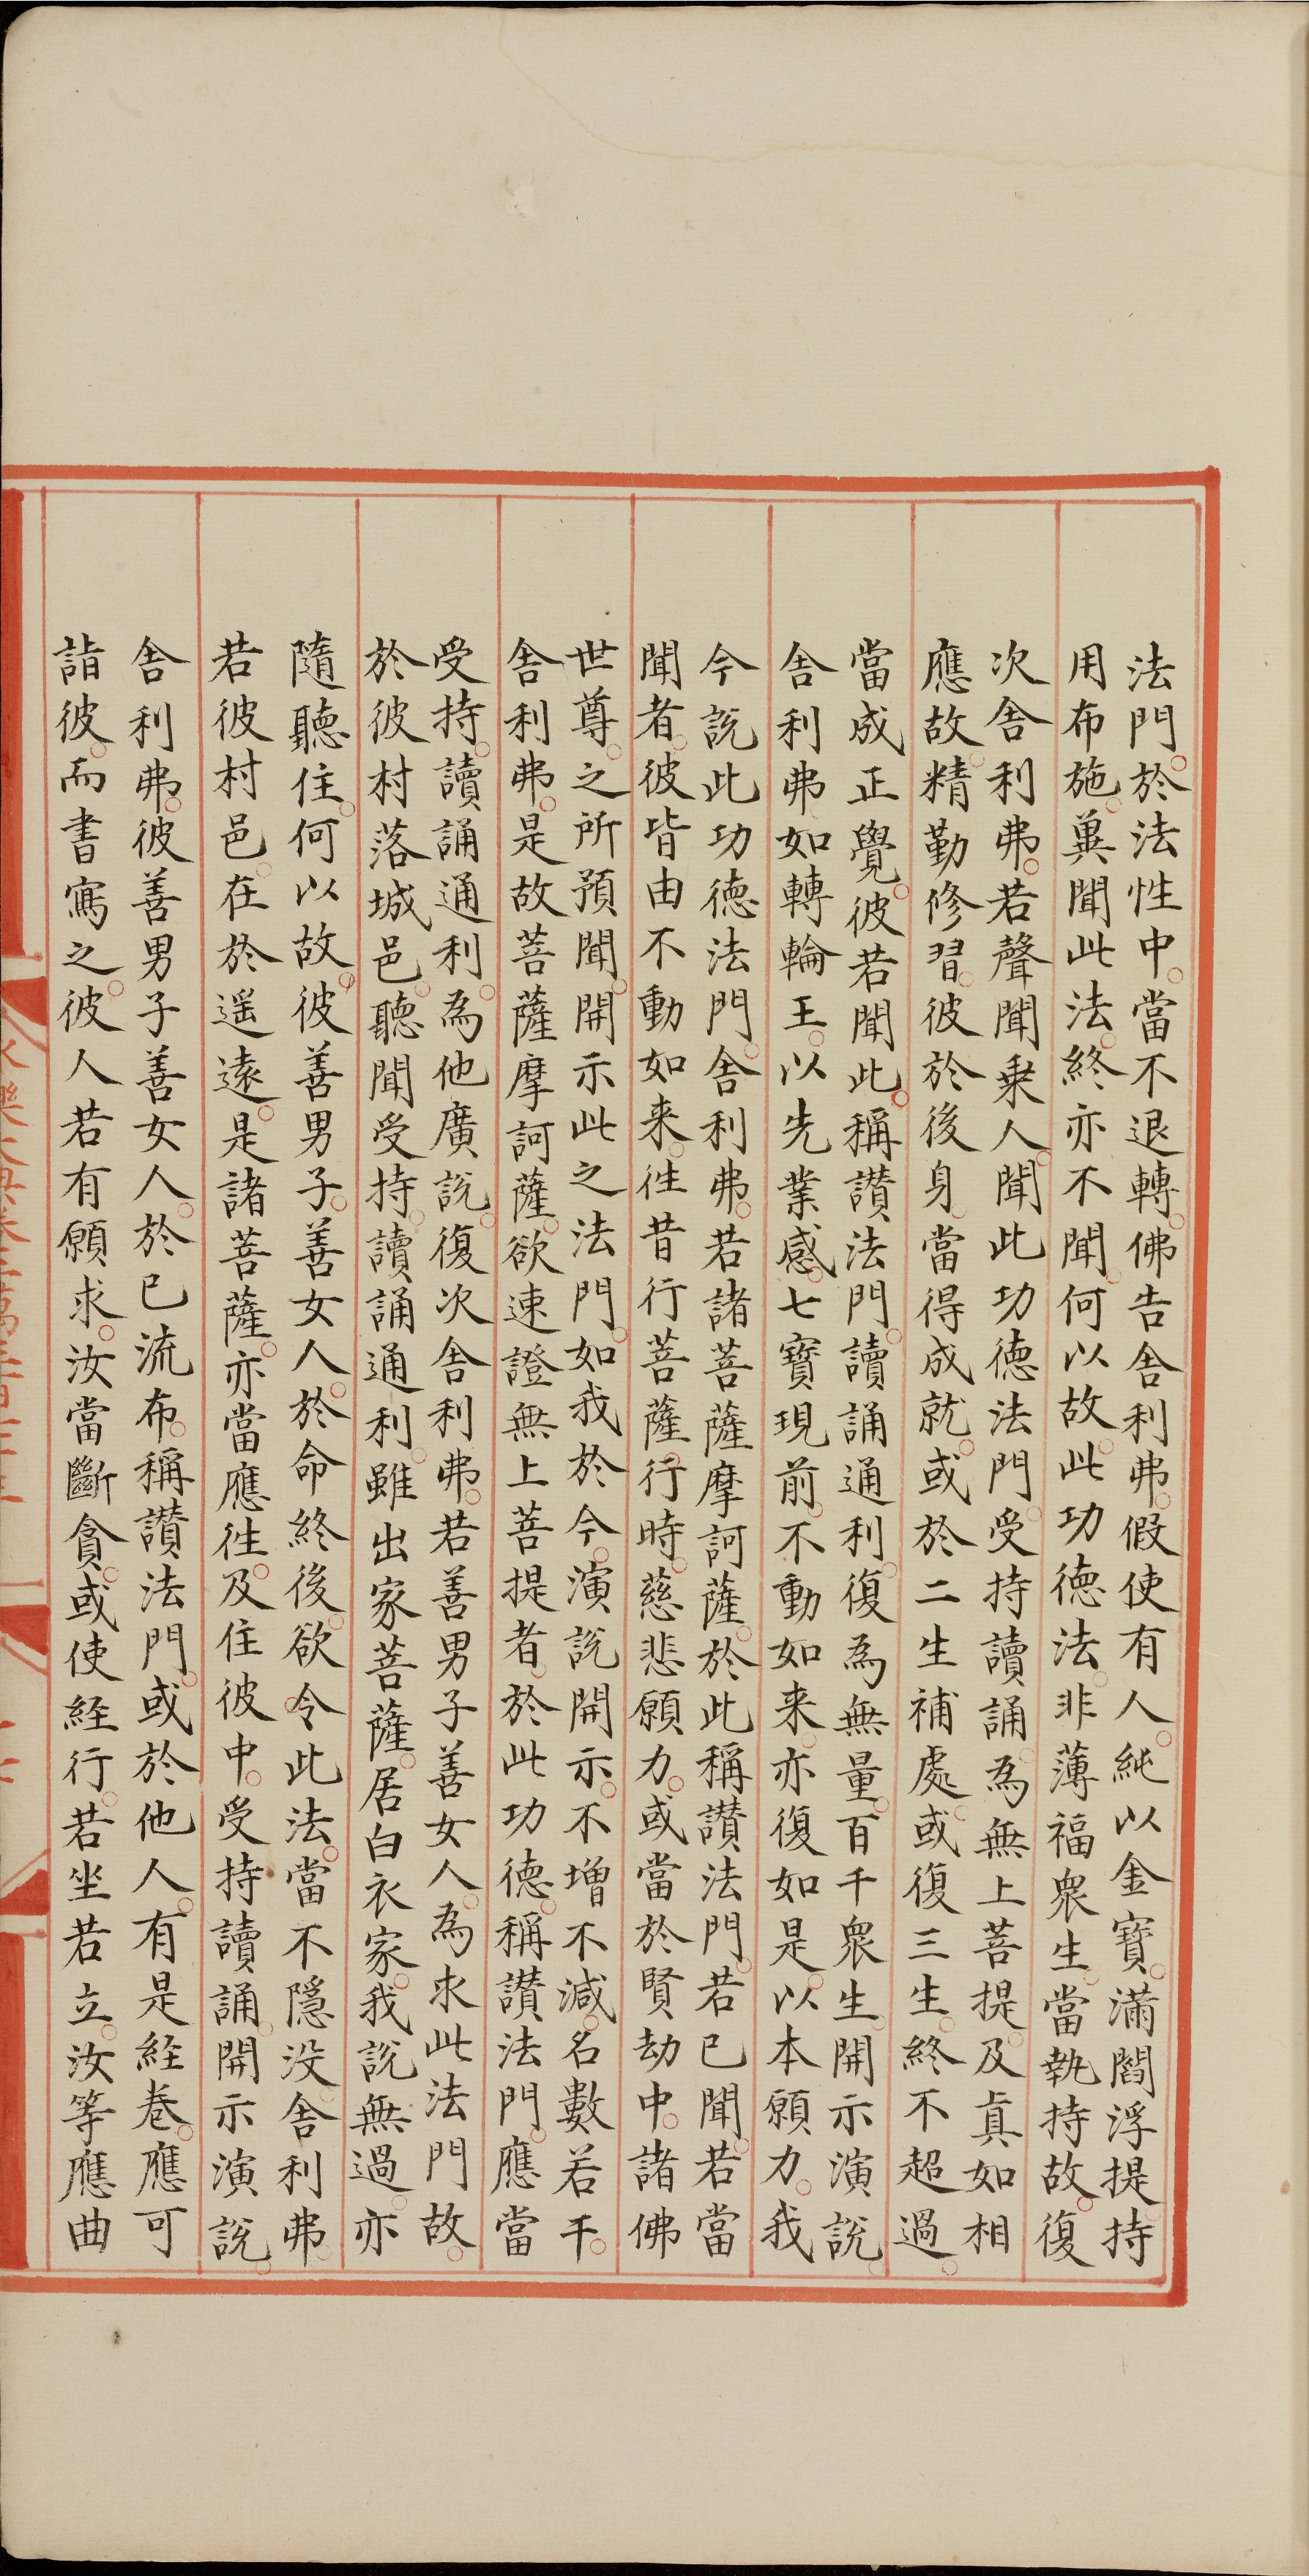 法門。於法性中。當不退轉。佛告舍利弗。假使有人。純以金寶。滿閻浮提持
用布施。兾聞此法。終亦不聞。何以故。此功德法。非薄福衆生。當執持故。復
次舍利弗。若聲聞乗人。聞此功德法門。受持讀誦。為無上菩提。及真如相
應故。精勤修習。彼於後身。當得成就。或於二生補處。或復三生。終不超過。
當成正覺。彼若聞此。稱讃法門。讀誦通利。復為無量。百千衆生。開示演說。
舍利弗如轉輪王。以先業感。七寶現前。不動如来。亦復如是。以本願力。我
今說此功德法門。舍利弗。若諸菩薩摩訶薩。於此稱讃法門。若已聞。若當
聞者。彼皆由不動如来。徃昔行菩薩行時。慈悲願力。或當於賢劫中。諸佛
世尊。之所預聞。開示此之法門。如我於今。演說開示。不增不減。名數若干。
舍利弗。是故菩薩摩訶薩。欲速證無上菩提者。於此功德。稱讃法門。應當
受持。讀誦通利。為他廣說。復次舍利弗。若善男子善女人。為求此法門故。
於彼村落城邑。聽聞受持。讀誦通利。雖出家菩薩。居白衣家。我說無過。亦
隨聽住。何以故。彼善男子。善女人。於命終後。欲令此法。當不隱没。舍利弗。
若彼村邑。在於遥遠。是諸菩薩。亦當應徃。及住彼中。受持讀誦。開示演說。
舍利弗。彼善男子善女人。於已流布。稱讃法門。或於他人。有是經卷。應可
詣彼。而書寫之。彼人若有願求。汝當斷貪。或使經行。若坐若立。汝等應曲